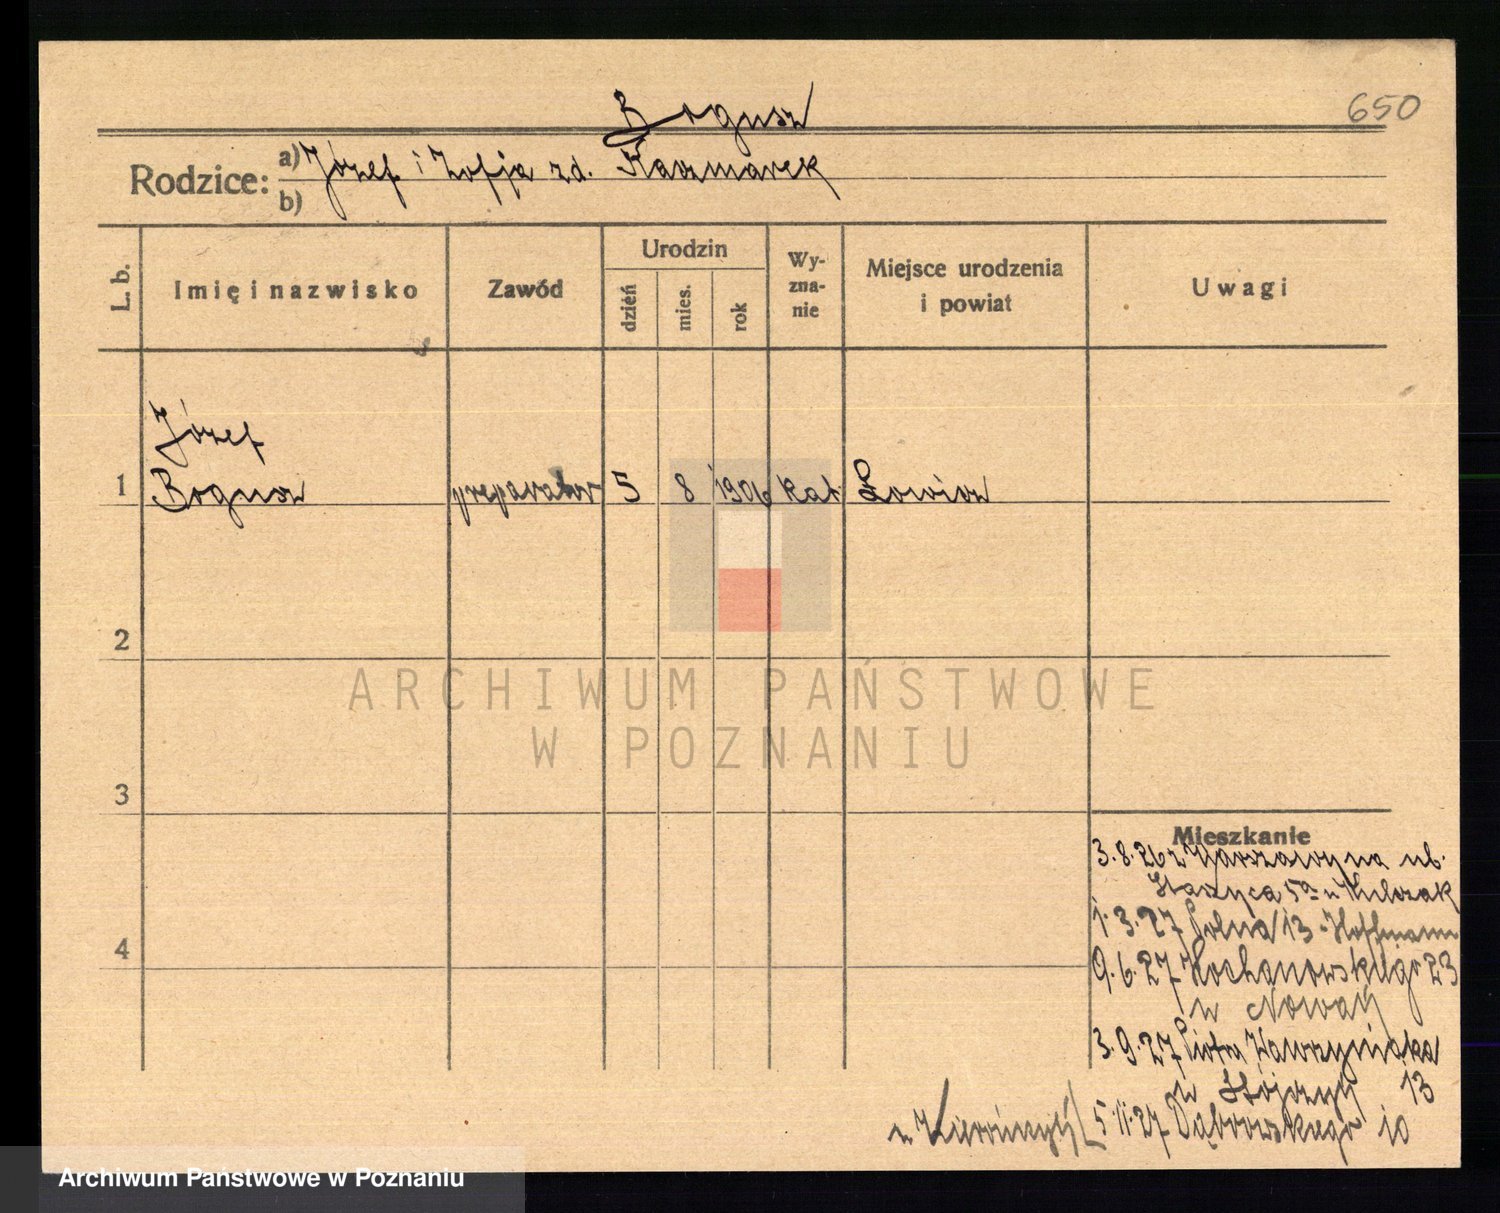 650
Bogusz
Rodzice: a) Józef i Zofja zd. Kaczmarek
b)
L. b.
Imię i nazwisko
Zawód
Urodzin
dzień
mies.
rok
Wy-
zna-
nie
Miejsce urodzenia
i powiat
Uwagi
Józef
1 Bogusz preparator 5 8 1906 kat Łowicz
2
ARCHIWUM PAŃSTWOWE
W POZNANIU
3
Mieszkanie
3.8.26 z Warszawy na ul.
Staszyca 5a u
4
1.3.27 Polna 13 Hoffmann
9.6.27 Kochanowskiego 23
u Nowak
3.9.27 Piotra Wawrzyniaka
u 13
u 5.11.27 Dąbrowskiego 10
Archiwum Państwowe w Poznaniu